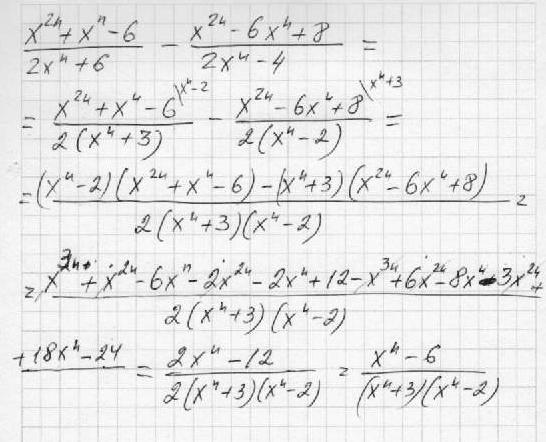 (x^{2n} + x^n - 6)/(2x^n + 6) - (x^{2n} - 6x^n + 8)/(2x^n - 4) =
= (x^{2n} + x^n - 6)/(2(x^n + 3)) \x^n - 2 - (x^{2n} - 6x^n + 8)/(2(x^n - 2)) \x^n + 3 =
= ((x^n - 2)(x^{2n} + x^n - 6) - (x^n + 3)(x^{2n} - 6x^n + 8))/(2(x^n + 3)(x^n - 2)) =
= (x^{3n} + x^{2n} - 6x^n - 2x^{2n} - 2x^n + 12 - x^{3n} + 6x^{2n} - 8x^n - 3x^{2n} +)/(2(x^n + 3)(x^n - 2))
+ 18x^n - 24 = (2x^n - 12)/(2(x^n + 3)(x^n - 2)) = (x^n - 6)/((x^n + 3)(x^n - 2))